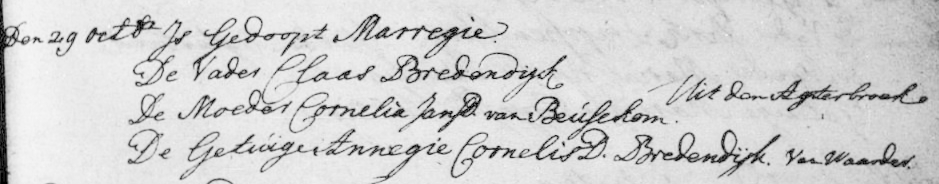 Den 29 octbr Is Gedoopt Marregie.
De Vader Claas Bredendijk
Uit den Agterbroek
De Moeder Cornelia JansD. van Beusekom.
De Getuige Annegie CornelisD. Bredendijk. Van Waarder.